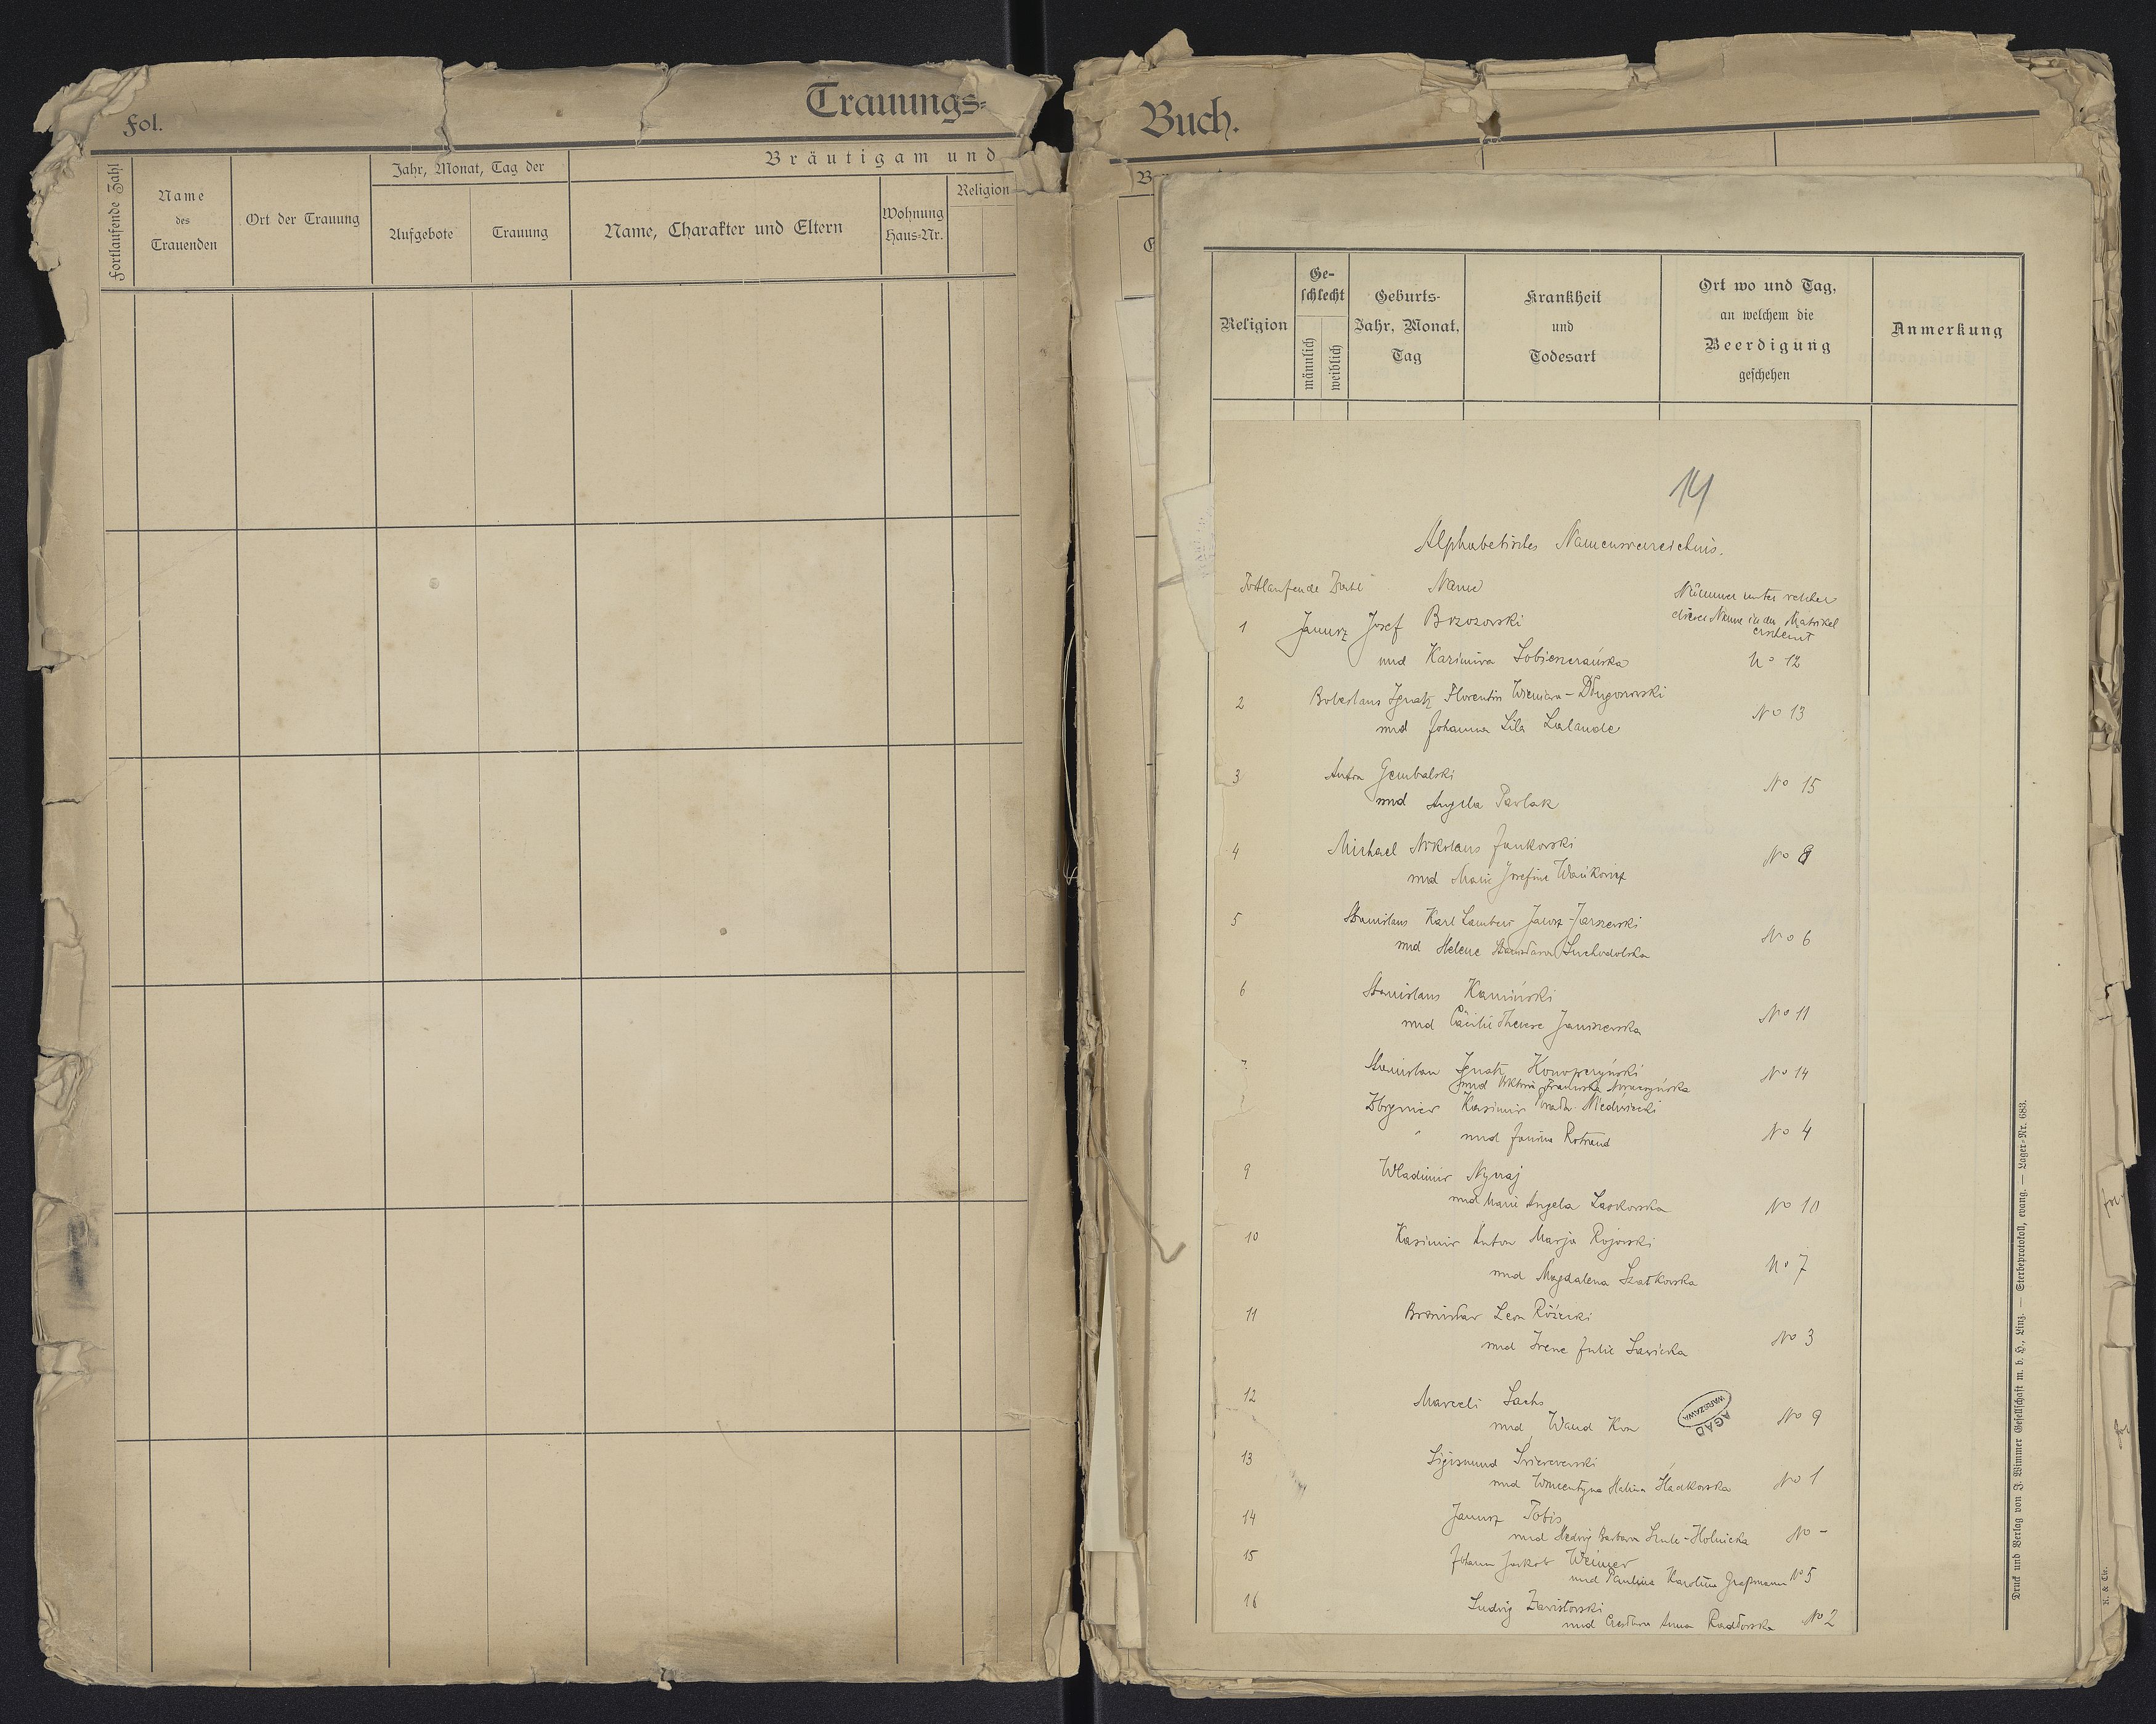 Trauungs=
Fol.
Fortlaufende Zahl
Name
des
Trauenden
Ort der Trauung
Jahr, Monat, Tag der
Aufgebote
Trauung
Bräutigam und
Name, Charakter und Eltern
Wohnung
Haus=Nr.
Religion
Buch.
Religion
Ge-
schlecht
männlich
weiblich
Geburts-
Jahr, Monat,
Tag
Krankheit
und
Todesart
Ort wo und Tag,
an welchem die
Beerdigung
geschehen
Anmerkung
14
Alphabetisches Namensverzeichnis.
Fortlaufende Zahl Name Nummer unter welcher
dieser Name in der Matrikel
erscheint
1 Janusz Josef Brzozowski
und Kazimira Sobieszczańska No 12
2 Boleslaus Ignatz Florentin Wieniawa-Długoszowski
und Johanna Lila Lalande No 13
3 Anton Gembalski
und Angela Pawlak No 15
4 Michael Nikolaus Jankowski
und Marie Josefine Wańkowicz No 8
5 Stanislaus Karl Lambert Jarosz-Jarszewski
und Helene Stanisława Suchodolska No 6
6 Stanislaus Kamiński
und Cäcilie Therese Janiszewska No 11
7 Stanislaus Ignatz Konopczyński No 14
und Viktoria Franziska
Zbigniew Kasimir
und Janina Rotwand No 4
9 Wladimir
und Marie Angela Laskowska No 10
10 Kasimir Anton Marja Rojowski
und Magdalena Szatkowska No 7
11 Bronisław Leon Różycki
und Irene Julie Sawicka No 3
12 Marceli Sachs
und Wand Kon No 9
AGAD
WARSZAWA
13 Sigismund
und Wincentyna Halina Hladkowska No 1
14 Janusz Tobis
und Hedwig Barbara No -
15 Johann Jakob Weimer
und Paulina Karoline Graßmann No 5
16 Ludwig Zawistowski
und Czesława Anna Radłowska No 2
Druck und Verlag von J. Wimmer Gesellschaft m. b. H., Linz. — Sterbeprotokoll, evang. — Lager=Nr. 683.